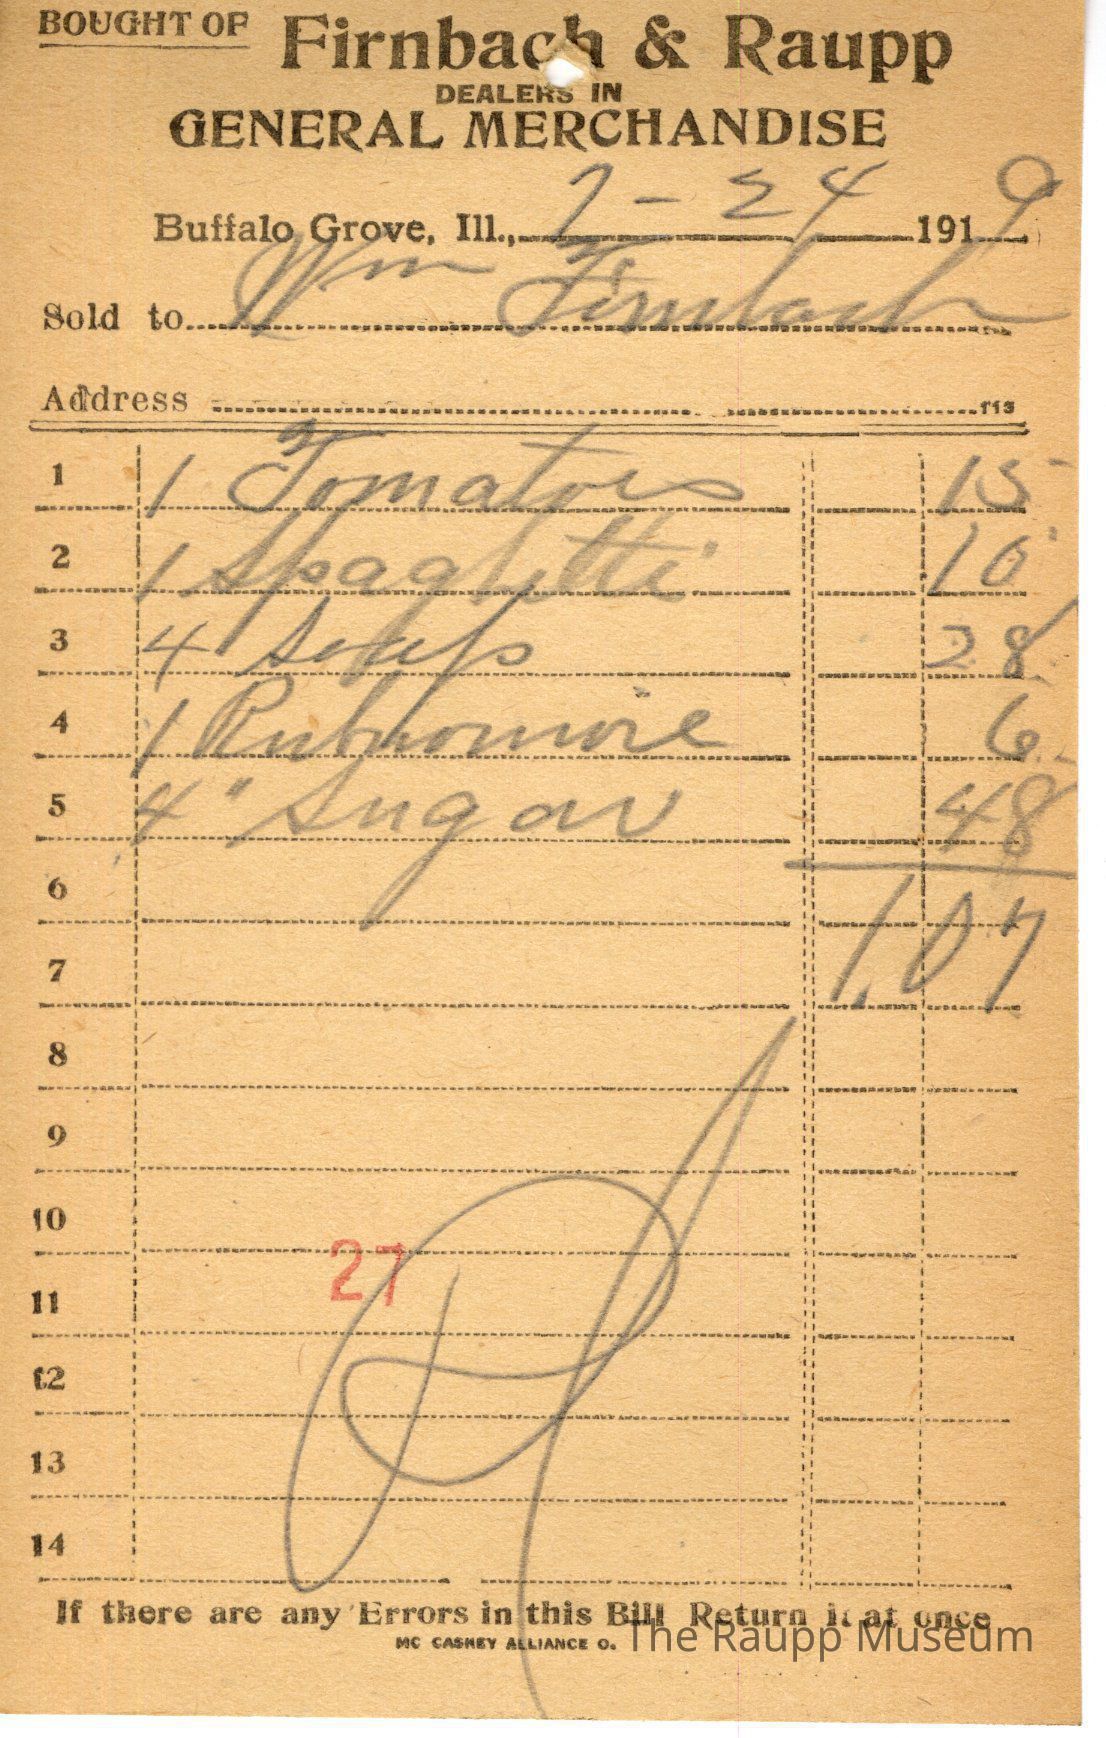 BOUGHT OF Firnbach & Raupp
DEALERS IN
GENERAL MERCHANDISE
Buffalo Grove, Ill., 7-24 1919
Sold to Wm Firnbach
Address 113
1 1 Tomatoes 15
2 1 Spaghetti 10
3 4 Soap 28
4 1 Rubnomore 6
5 4" Sugar 48
6
7 1.07
8
9
10
27
11
12
13
14
If there are any Errors in this Bill Return it at once
MC CASKEY ALLIANCE O.
The Raupp Museum